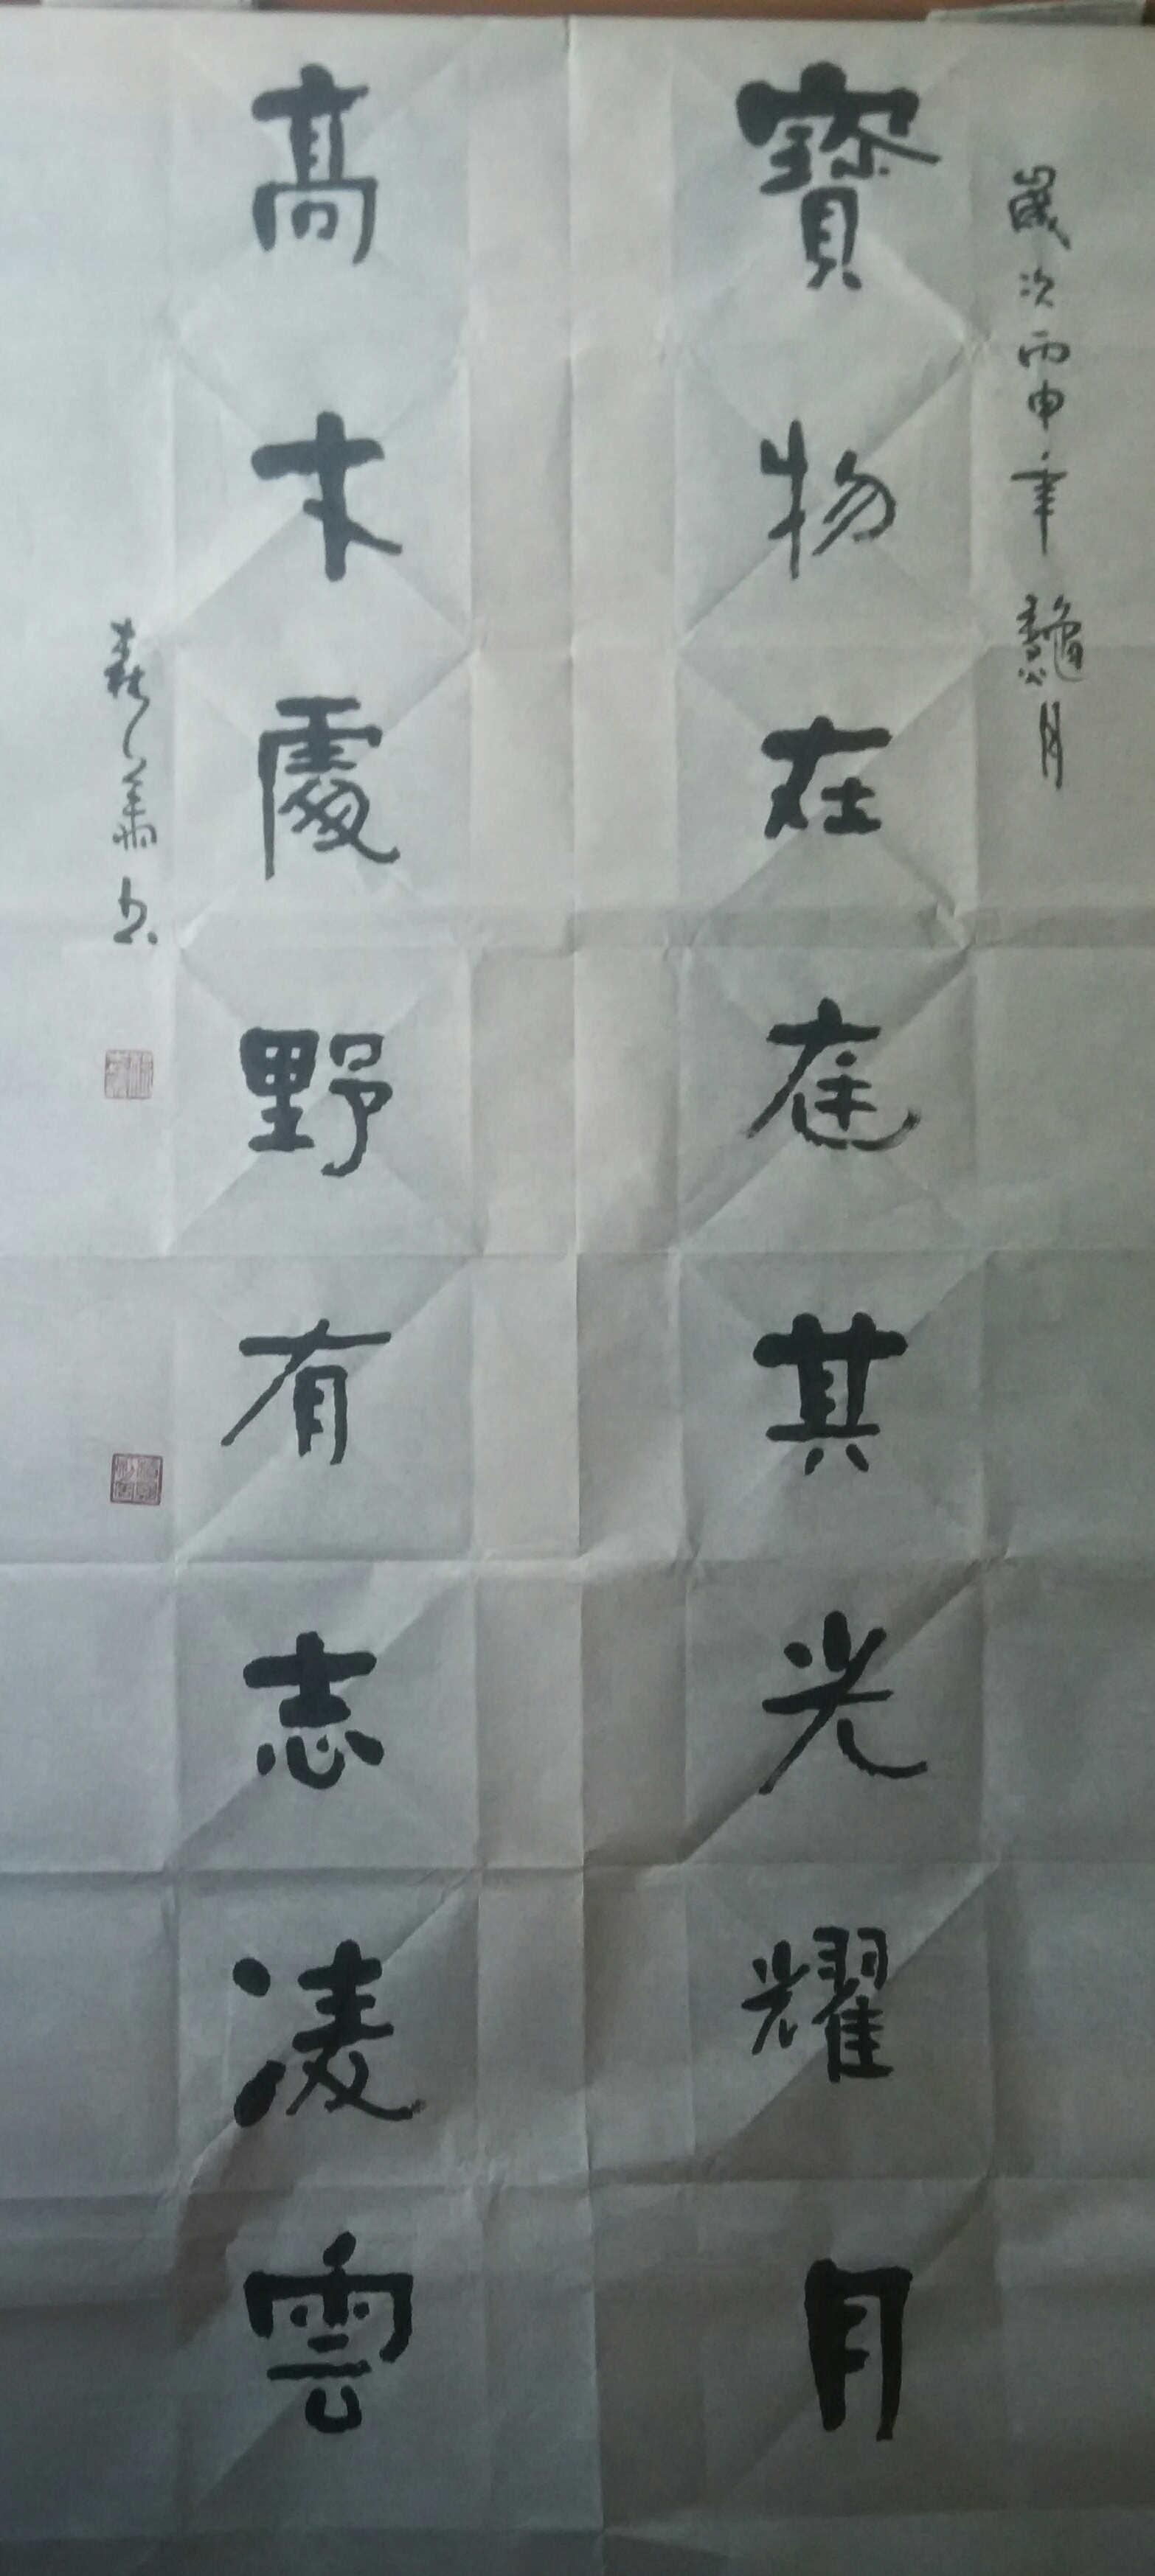 歲次丙申年龝月
寶物在庭其光耀月
高木處野有志凌雲
書